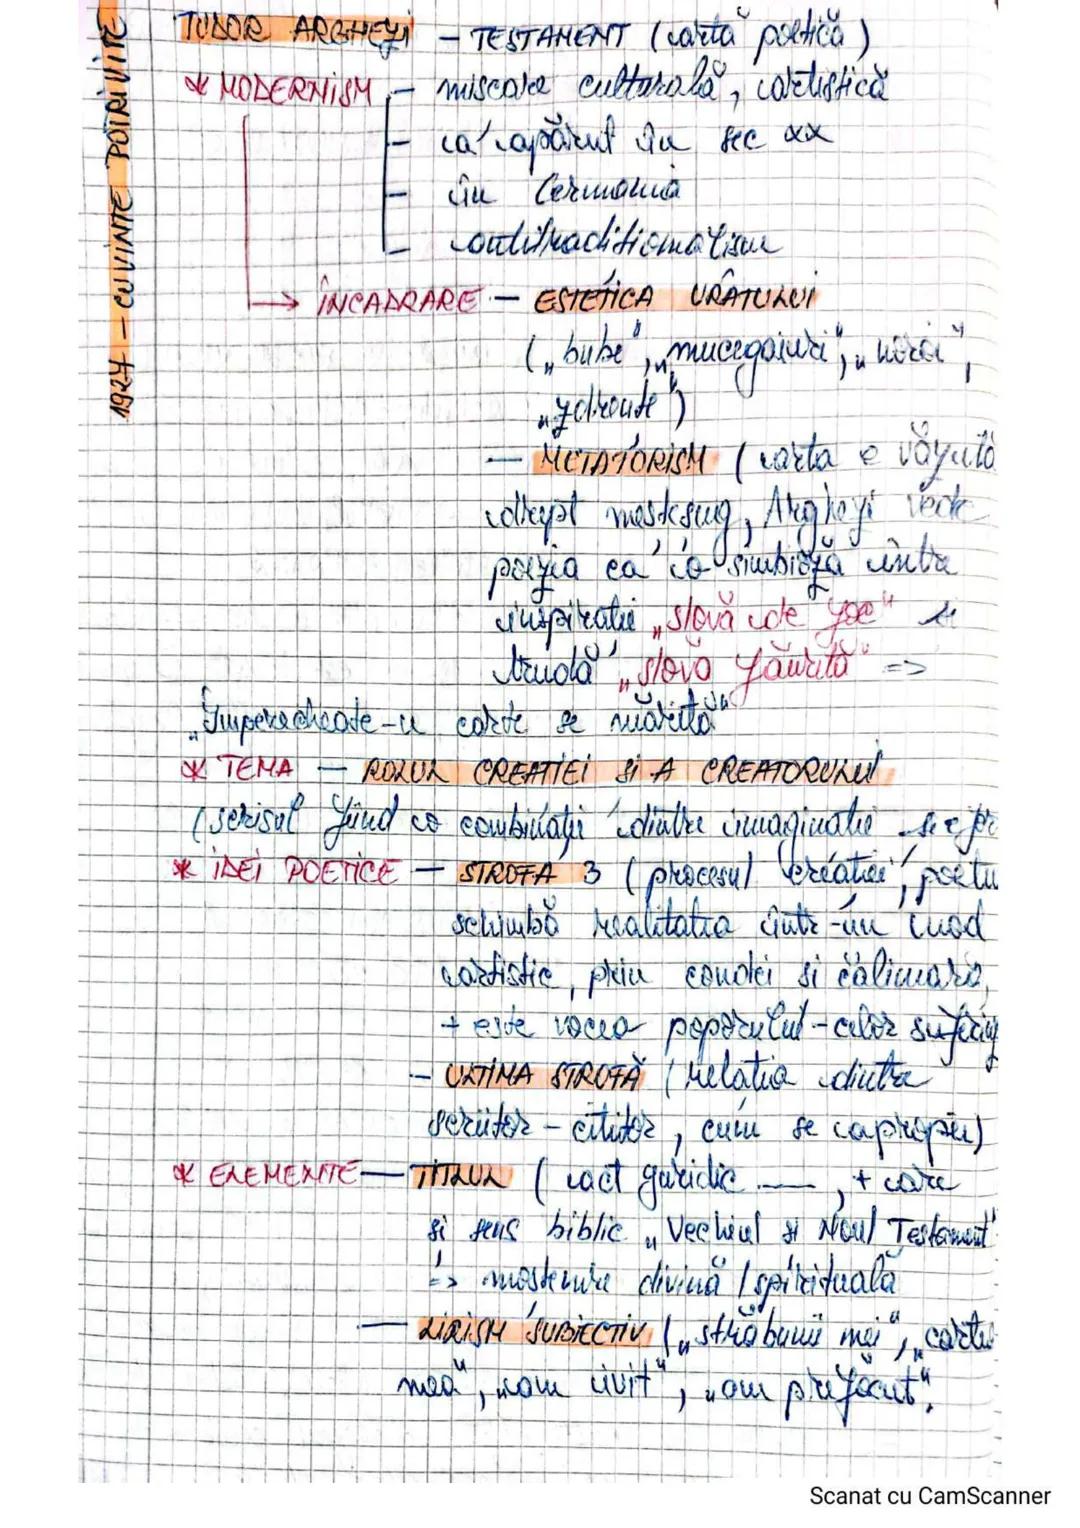 1927 - CUVINTE POTRIVITE
TUDOR ARGHEZI - TESTAMENT (artă poetică)
* MODERNISM - miscare culturală, artistică
- a apărut în sec XX
- în Germania
- antitraditionalism
→ ÎNCADRARE - ESTETICA URÂTULUI
(„bube", „mucegaiuri", „noroi",
„zdrente")
- METATORISM (arta e văzută
drept mestesug, Arghezi vede
poezia ca o simbioză între
inspiratie „slovă de foc" si
trudă „slova făurită" =>
„Împerecheate-n carte se mărită"
* TEMA - ROLUL CREATIEI SI A CREATORULUI
(scrisul fiind o combinatii dintre imaginatie si
* IDEI POETICE - STROFA 3 (procesul creatiei, poetu
schimbă realitatea într-un mod
artistic, prin condei si călimară,
+ este vocea poporului - celor
- ULTIMA STROFĂ (relatia dintre
scriitor - cititor, cum se apropie)
* ELEMENTE - TITLUL (act juridic —, + are
si sens biblic „Vechiul si Noul Testament"
=> mostenire divină / spirituală
- LIRISM SUBIECTIV („străbunii mei", „cartea
mea", „am ivit", „am prefăcut".
Scanat cu CamScanner